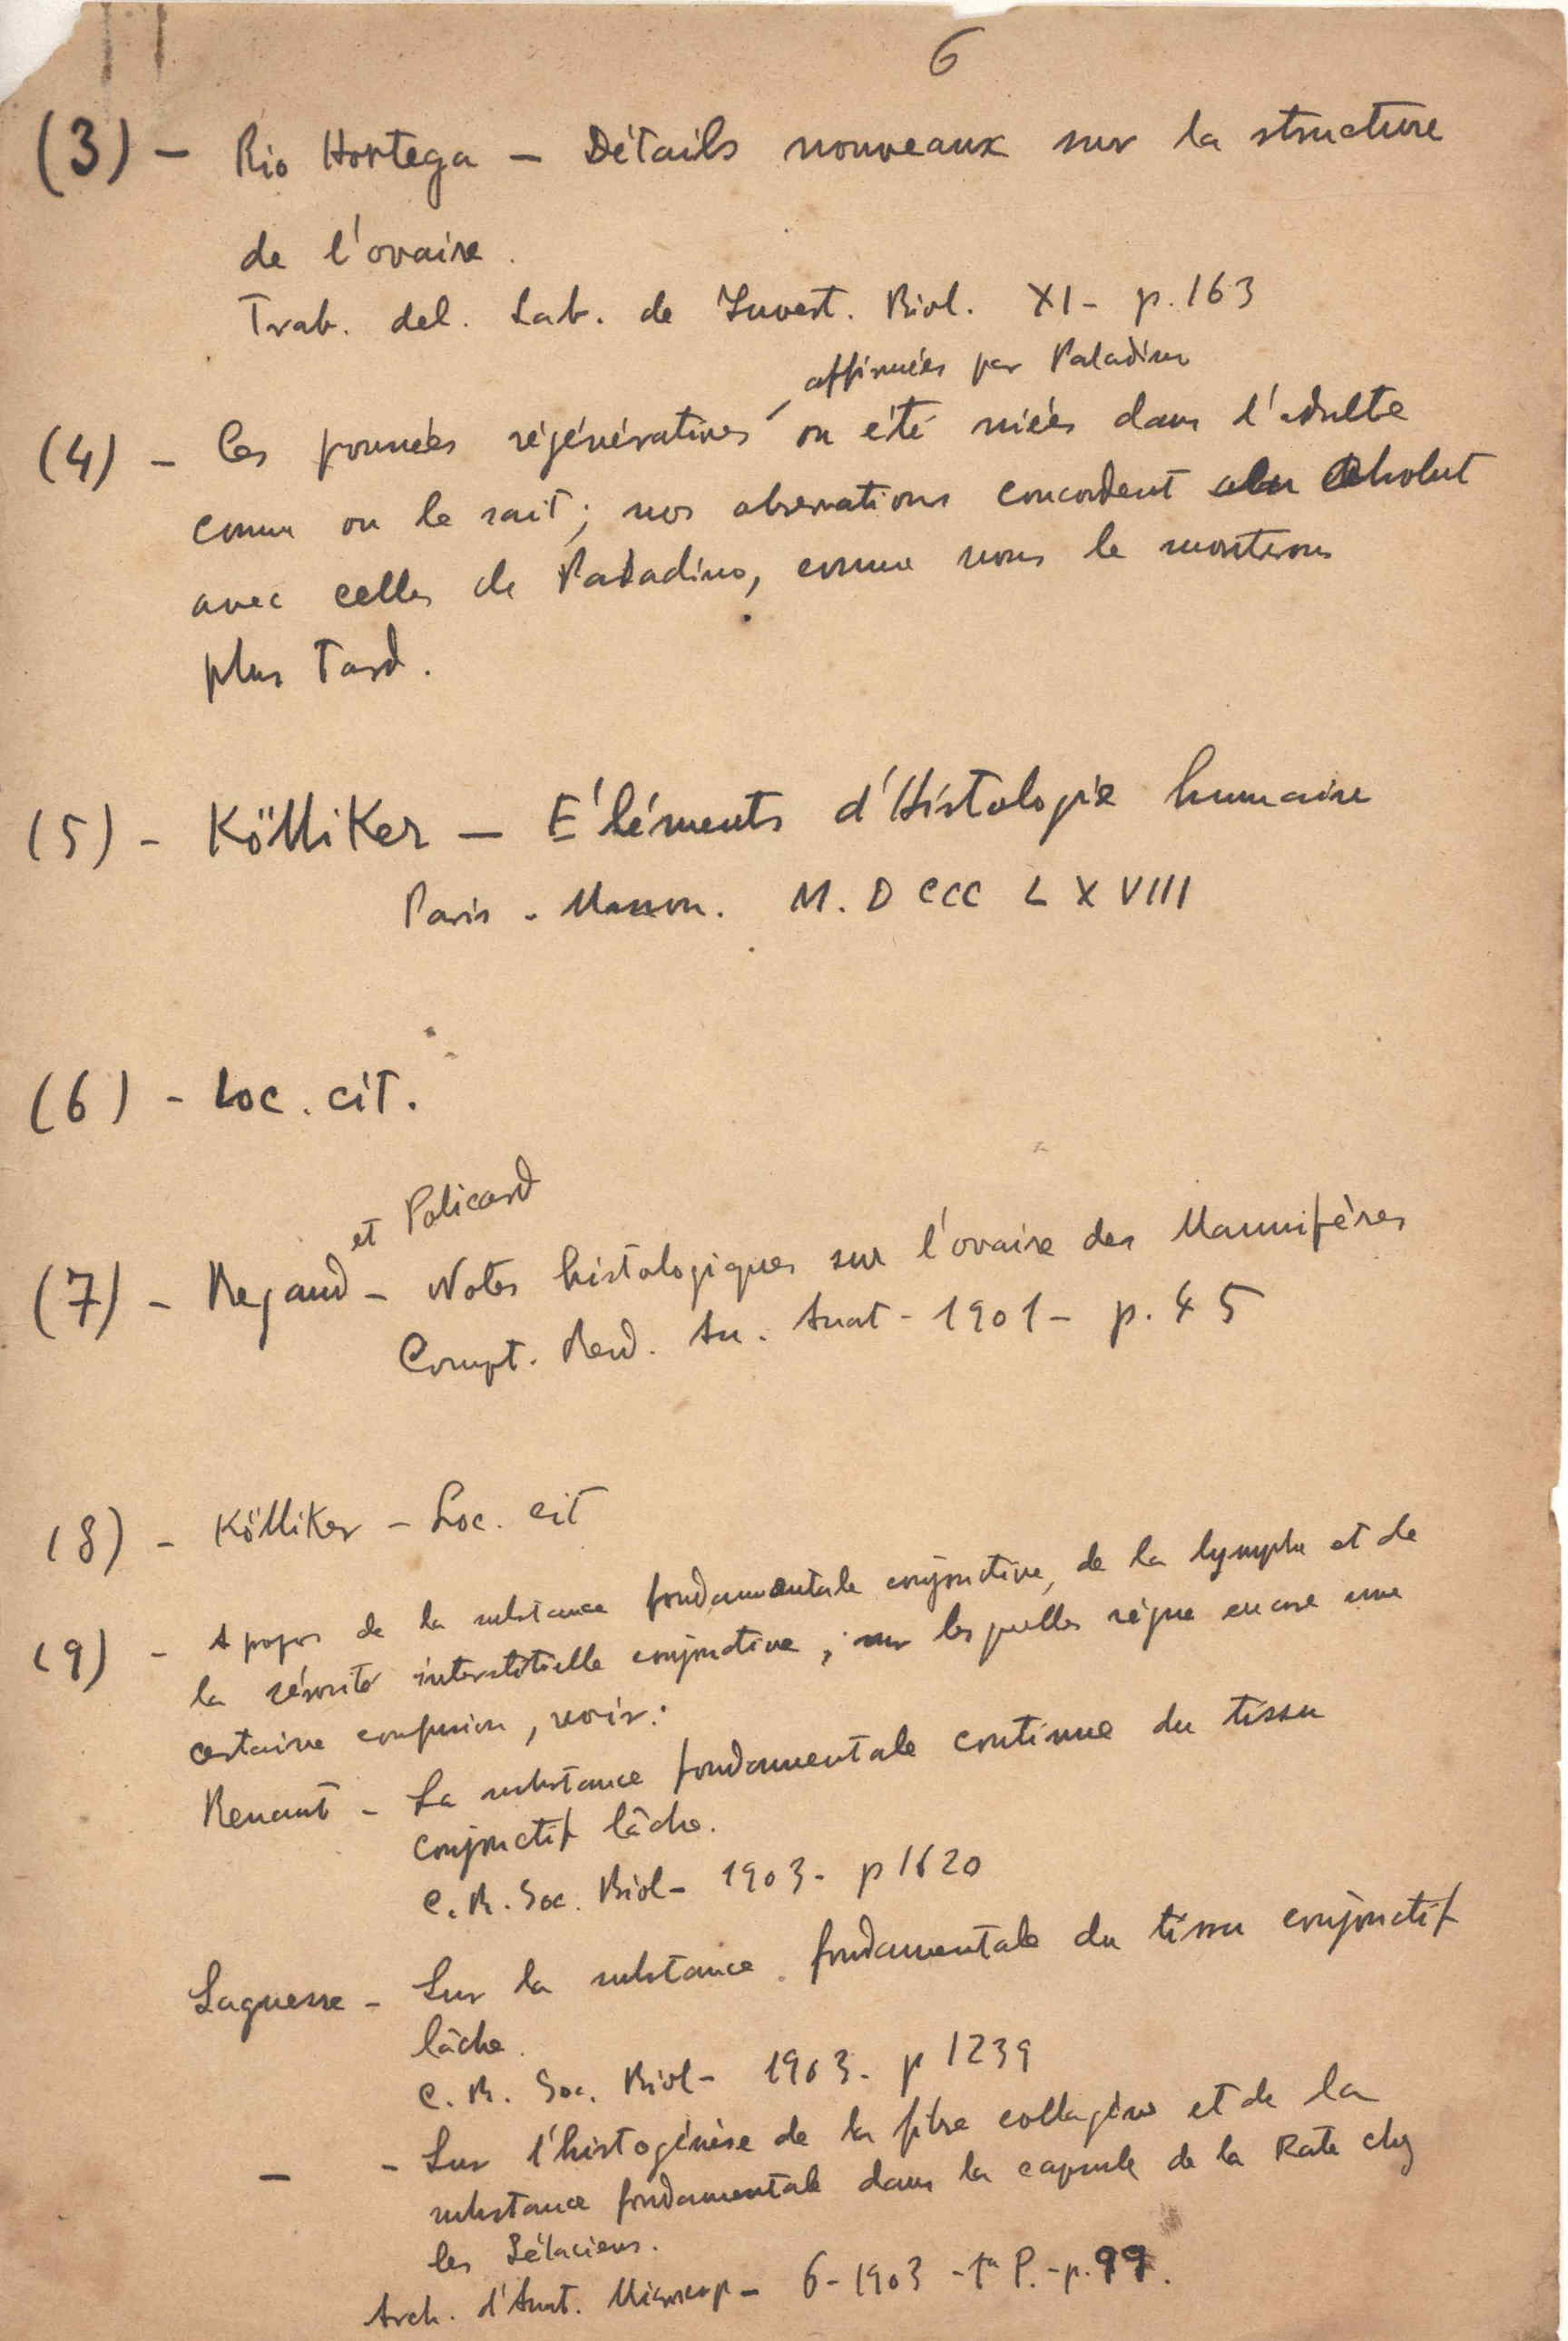 6
(3) - Rio Hortega - Détails nouveaux sur la structure
de l'ovaire.
Trab. del. Lab. de Invest. Biol. XI - p. 163
affirmées par Paladino
(4) - Ces poussées régénératives on été niées dans l'adulte
comme on le sait; nos observations concordent absolut
avec celles de Paladino, comme nous le montrons
plus tard.
(5) - Kölliker - Eléments d'Histologie humaine
Paris - Masson. M. D CCC L X VIII
(6) - Loc. cit.
et Policard
(7) - Regaud - Notes histologiques sur l'ovaire des Mammifères
Compt. Rend. An. Anat - 1901 - p. 45
(8) - Kölliker - Loc. cit
(9) - A propos de la substance fondamentale conjonctive, de la lymphe et de
la sérosité interstitielle conjonctive, sur lesquelles règne encore une
certaine confusion, voir:
Renaut - La substance fondamentale continue du tissu
conjonctif lâche.
C. R. Soc. Biol - 1903 - p 1620
Laguesse - Sur la substance fondamentale du tissu conjonctif
lâche.
C. R. Soc. Biol - 1903 - p 1239
- - Sur l'histogénèse de la fibre collagène et de la
substance fondamentale dans la capsule de la Rate chez
les Sélaciens.
Arch. d'Anat. Microscop - 6 - 1903 - 1a P. - p. 99.